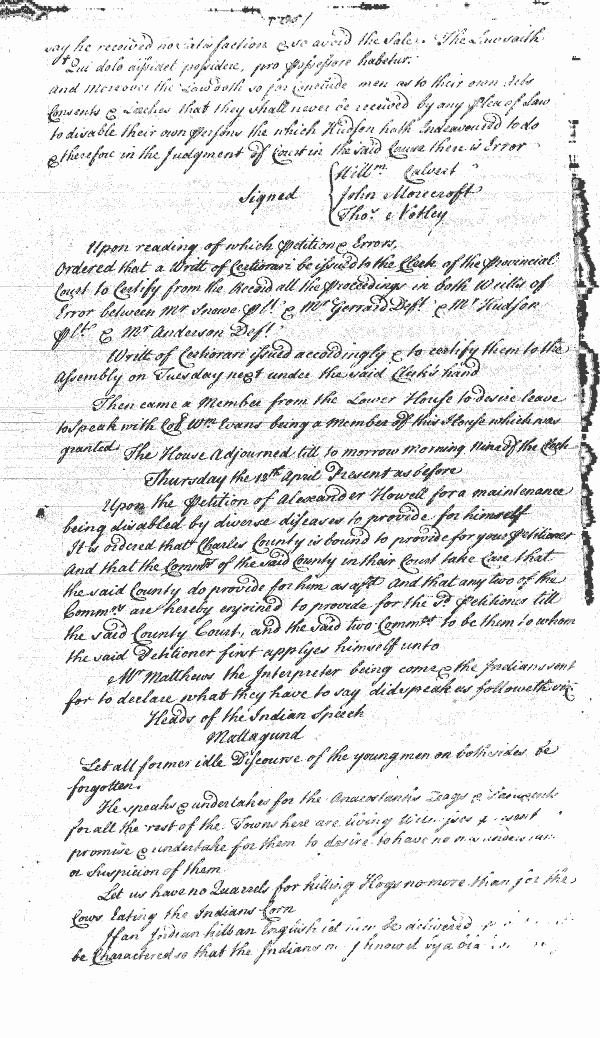 say he received not satisfaction & so avoid the Sale. The Law saith
Qui dolo desidet posidere, pro possessore habetur.
and moreover the Law doth so far Conclude men as to their own Acts
Consents & Laches that they shall never be received by any plea of Law
to disable their own persons the which Hudson hath Endeavoured to do
& therefore in the Judgment of Court in the said Cause there is Error
Signed
Willm Calvert
John Morecroft
Thos Notley
Upon reading of which Petition & Errors.
Ordered that a Writt of Certiorari be issued to the Clerk of the Provincial
Court to Certify from the Record all the Proceedings in both Writts of
Error between Mr Snowe Plt. & Mr Gerrard Deft & Mr Hudson
Plt. & Mr Anderson Deft
Writt of Certiorari issued accordingly & to certify them to the
Assembly on Tuesday next under the said Clerk's hand
Then came a Member from the Lower House to desire leave
to speak with Coll Wm Evans being a Member of this House which was
granted The House Adjourned till to morrow morning Nine of the Clock
Thursday the 18th April Present as before
Upon the Petition of Alexander Howell for a maintenance
being disabled by diverse diseases to provide for himself
It is ordered that Charles County is bound to provide for your Petitioner
And that the Commrs of the said County in their Court take Care that
the said County do provide for him as afd And that any two of the
Commrs are hereby enjoined to provide for the sd Petitioner till
the said County Court, and the said two Commrs to be them to whom
the said Petitioner first applyes himself unto
Mr Matthews the Interpreter being come & the Indians sent
for to declare what they have to say did speak as followeth viz
Heads of the Indian Speech
Mattagund
Let all former idle Discourse of the young men on both sides be
forgotten.
He speaks & undertakes for the Anacostanks Doags &
for all the rest of the Towns here are living
promise & undertake for them to desire to have no
or Suspicion of them
Let us have no Quarrels for killing Hogs no more than for the
Cows Eating the Indians Corn
If an Indian kill an English let him be delivered
be Charactered so that the Indians